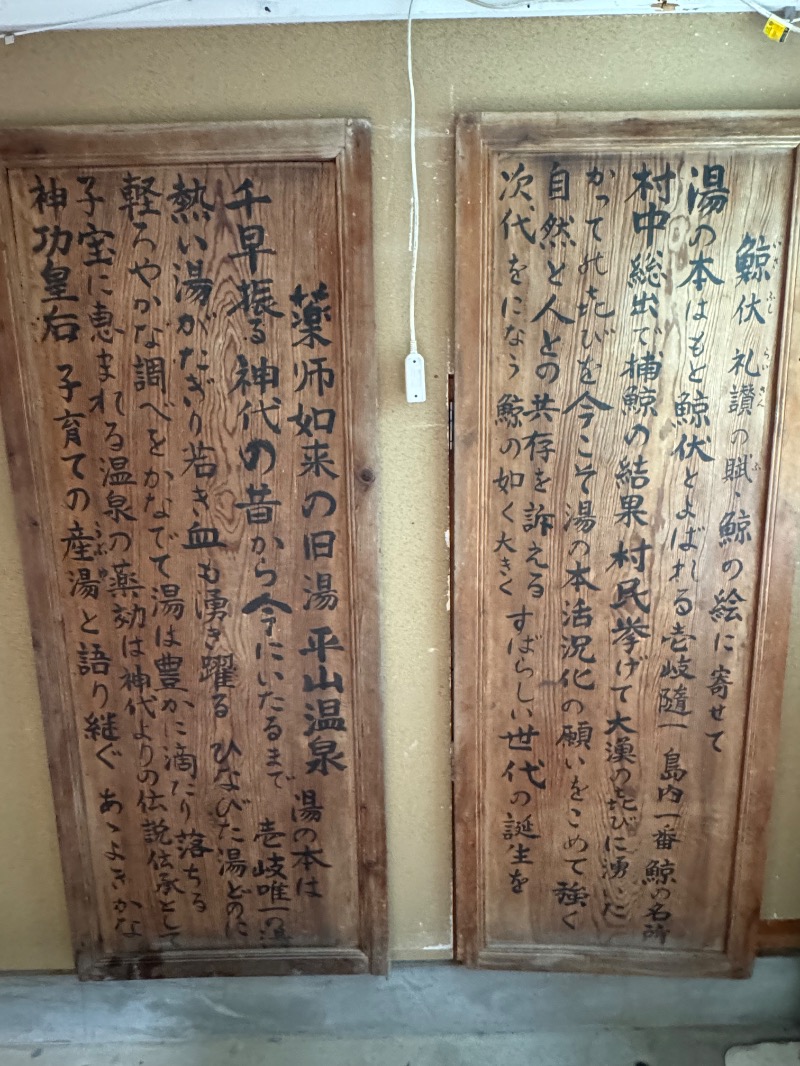 鯨伏礼讃の賦、鯨の絵に寄せて
いさふし らいさん ふ
湯の本はもと鯨伏とよばれる壱岐随一 島内一番鯨の名所
村中総出で捕鯨の結果村民挙げて大漁の㐂びに湧いた
かつての㐂びを今こそ湯の本活況化の願いをこめて強く
自然と人との共存を訴える すばらしい世代の誕生を
次代をになう鯨の如く大きく
薬師如来の旧湯 平山温泉 湯の本は
千早振る神代の昔から今にいたるまで 壱岐唯一の
熱い湯がたぎり若き血も湧き躍る ひなびた湯どのに
軽ろやかな調べをかなでて湯は豊かに滴たり落ちる
子宝に恵まれる温泉の薬効は神代よりの伝説伝承として
神功皇后 子育ての産湯と語り継ぐ あゝよきかな
うぶゆ